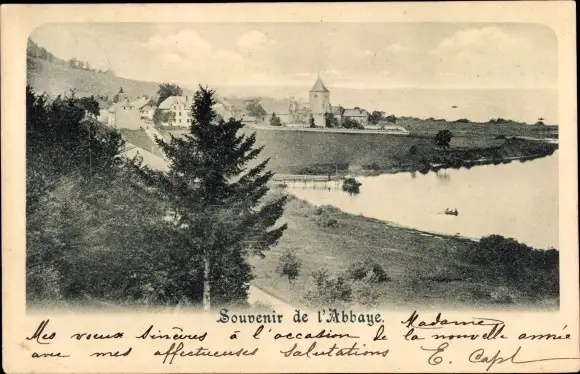 Souvenir de l'Abbaye.
Madame
Mes voeux sincères à l'occasion de la nouvelle année
avec mes affectueuses Salutations